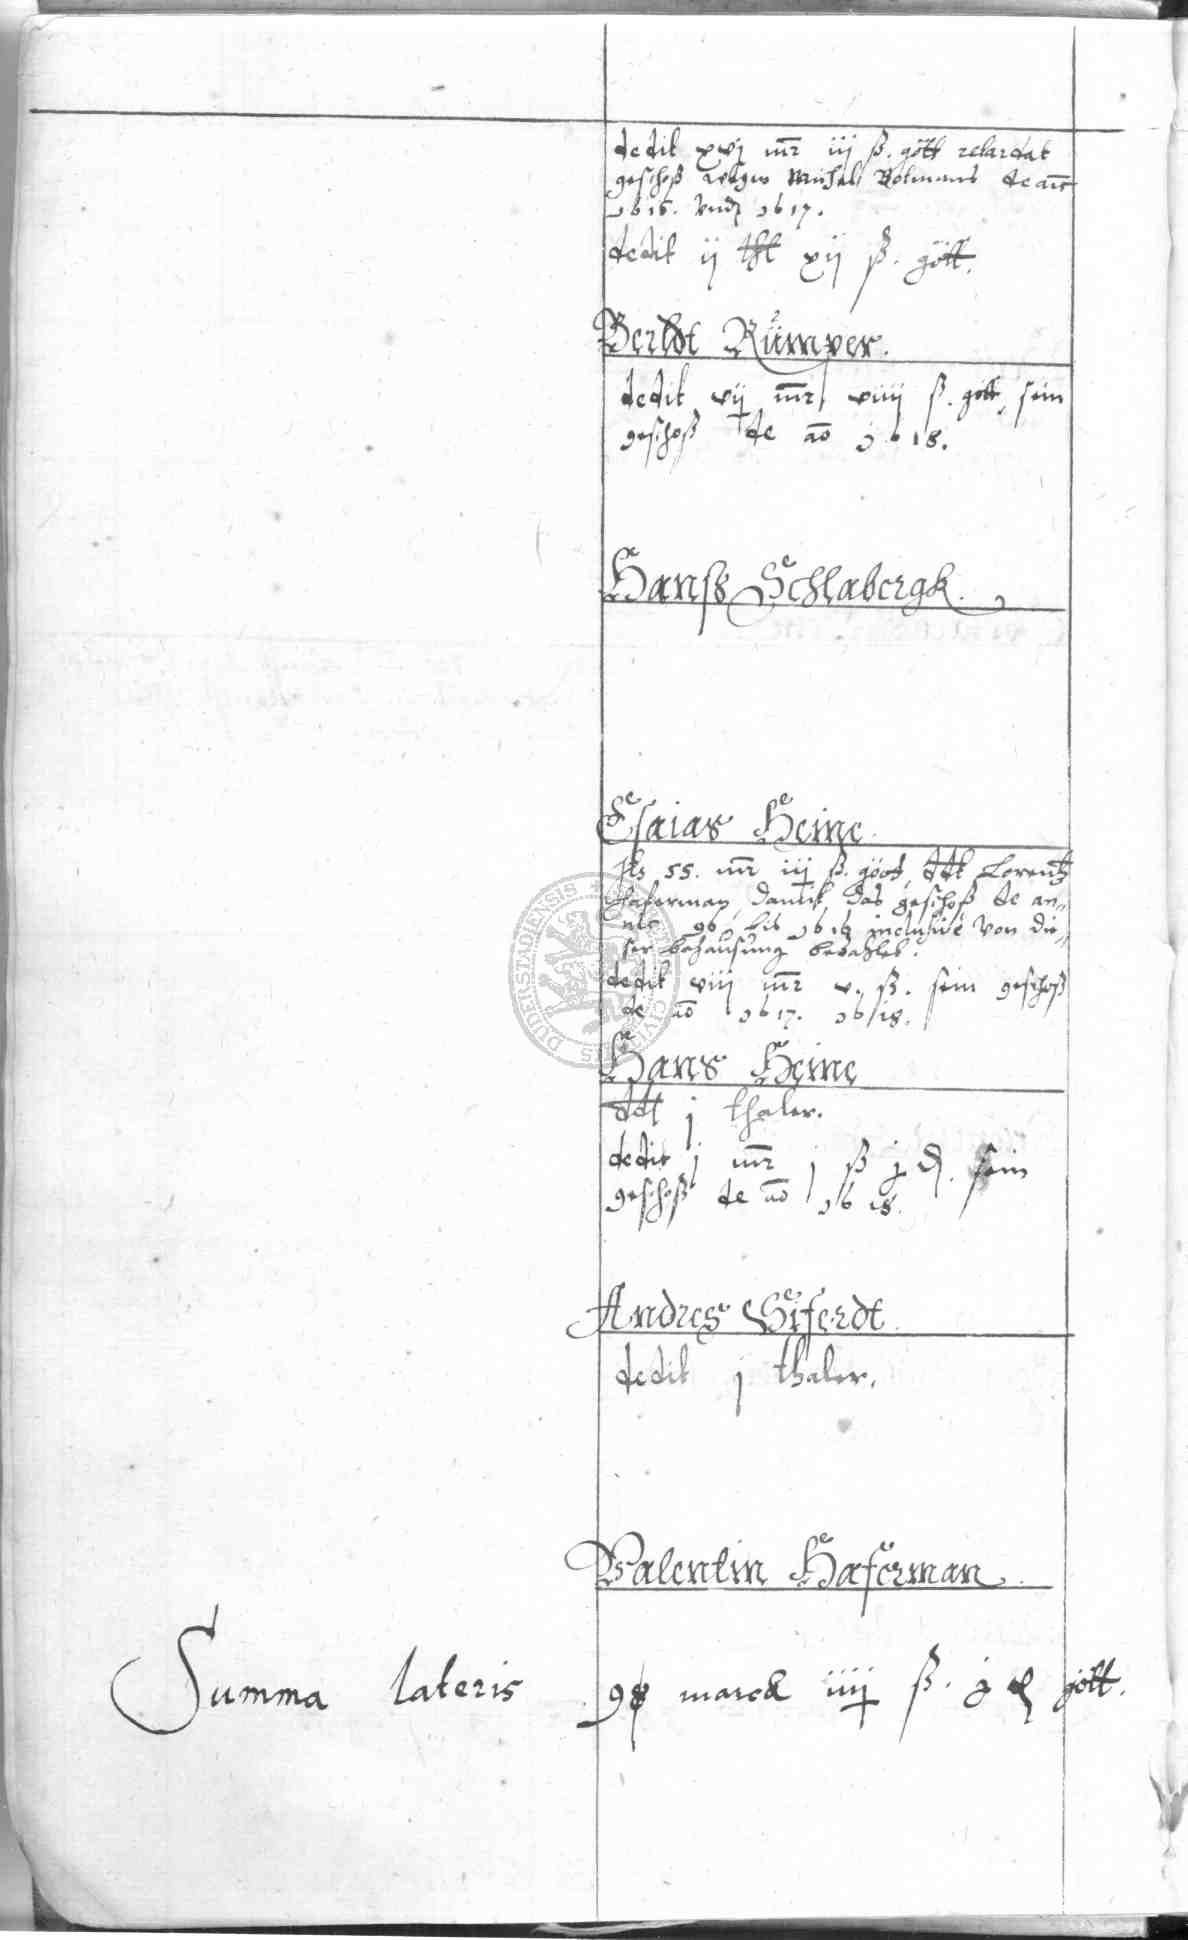 dedit xvj mr iij ß. gött retardat
geschoß wegen Michel Rolmans de ais
1616. Undt 1617.
dedit ij thl xij ß. gött.
Berldt Rümper.
dedit vij mr viiij ß. gött. sein
geschoß de ao 1618.
Hanss Schlabergk.
Esaias Heine
55. mr iij ß. gött, ddt Lorentz
Haferman, damit das geschoß de an=
nis 96 bis 1616 inclusive von die=
ser behausung bezahlet.
dedit viij mr v. ß. sein geschoß
de ao 1617. 1618.
Hans Heine
ddt j thaler.
dedit j mr j ß j d. sein
geschoß de ao 1618.
Andres Siferdt
dedit j thaler.
Valentin Haferman.
Summa lateris 98 marck iiij ß. j d gött.
DUDERSTADIENSIS CIVITATIS